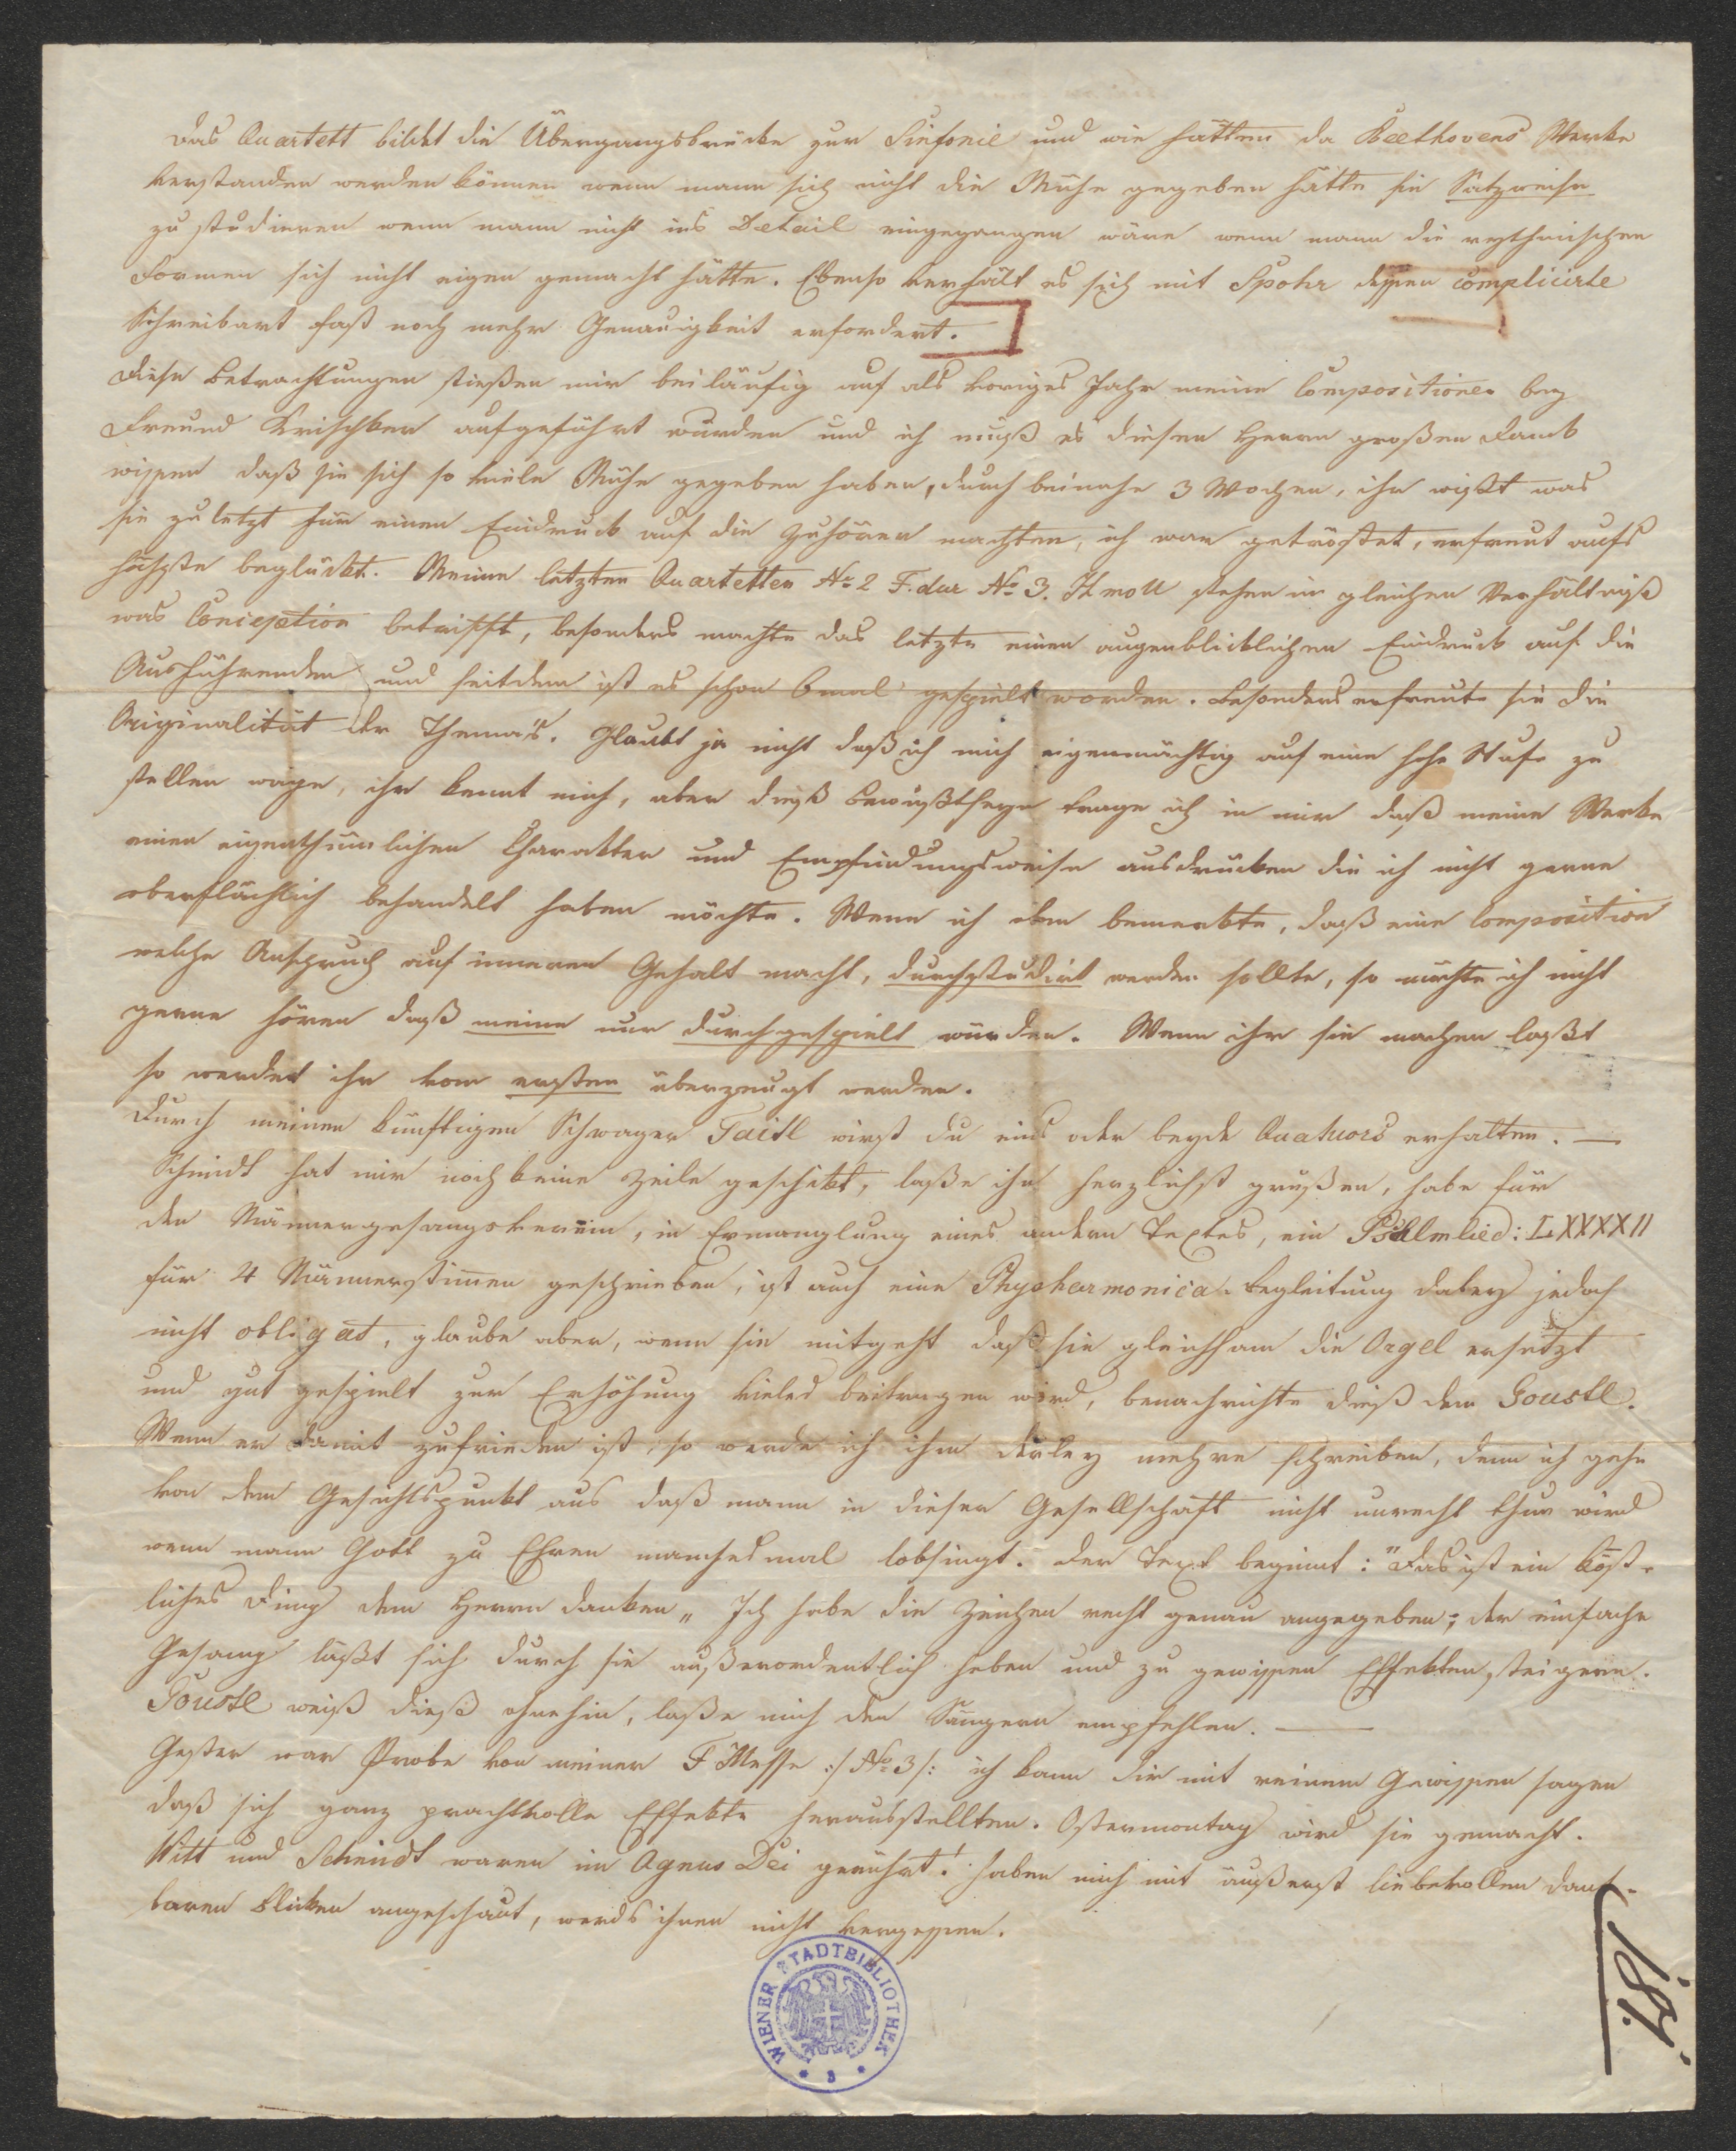 Das Quartett bildet die Übergangsbrücke zur Sinfonie und wie hätten da Beethovens Werke
verstanden werden können wenn mann sich nicht die Mühe gegeben hätte sie Satzweise
zu studieren wenn mann nicht ins Detail eingegangen wäre wenn mann die rythmischen
Formen sich nicht eigen gemacht hätte. Ebenso verhält es sich mit Spohr dessen complicirte
Schreibart fast noch mehr Genauigkeit erfordert.
Diese Betrachtungen stießen mir beiläufig auf als voriges Jahr meine Compositionen bey
Freund Krischker aufgeführt wurden und ich muß es diesen Herrn großen Dank
wissen daß sie sich so viele Mühe gegeben haben, durch beinahe 3 Wochen, ihr wißt was
sie zuletzt für einen Eindruck auf die Zuhörer machten, ich war getröstet, erfreut aufs
höchste beglückt. Meine letzten Quartetten No 2 F. dur No 3. H moll stehen in gleichen Verhältniß
was Conception betrifft, besonders machte das letzte einen augenblicklichen Eindruck auf die
Ausführenden und seitdem ist es schon 6mal gespielt worden. Besonders erfreute sie die
Originalität der Thema's. Glaubt ja nicht daß ich mich eigenmächtig auf eine hohe Stufe zu
stellen wage, ihr kennt mich, aber dieß Bewußtseyn trage ich in mir daß meine Werke
einen eigenthümlichen Charakter und Empfindungsweise ausdrücken die ich nicht gerne
oberflächlich behandelt haben möchte. Wenn ich oben bemerkte, daß eine Composition
welche Anspruch auf inneren Gehalt macht, durchstudirt werden sollte, so möchte ich nicht
gerne hören daß meine nur durchgespielt würden. Wenn ihr sie machen laßt
so werdet ihr vom ersten überzeugt werden.
Durch meinen künftigen Schwager Taitl wirst du eins oder beyde Quatuors erhalten. —
Schmidt hat mir noch keine Zeile geschickt, laße ihn herzlichst grüßen, habe für
den Männergesangsverein, in Ermanglung eines andern Textes, ein Psalmlied: LXXXXII
für 4 Männerstimmen geschrieben, ist auch eine Physharmonica-Begleitung dabey jedoch
nicht obligat, glaube aber, wenn sie mitgeht daß sie gleichsam die Orgel ersetzt
und gut gespielt zur Erhöhung vieles beitragen wird, benachrichte dieß dem Goustl.
Wenn er damit zufrieden ist, so werde ich ihm derley mehre schreiben, denn ich gehe
von dem Gesichtspunkt aus daß mann in dieser Gesellschaft nicht unrecht thun wird
wenn mann Gott zu Ehren manchesmal lobsingt. Der Text beginnt: "Das ist ein köst-
liches Ding dem Herrn danken„ Ich habe die Zeichen recht genau angegeben; der einfache
Gesang läßt sich durch sie außerordentlich heben und zu gewissen Effekten steigern.
Goustl weiß dieß ohnehin, laße mich den Sängern empfehlen. —
Gester war Probe von meiner F Messe :/ No 3 /: ich kann dir mit reinem Gewissen sagen
daß sich ganz prachtvolle Effekte herausstellten. Ostermontag wird sie gemacht.
Witt und Schmidt waren im Agnus Dei gerührt! haben mich mit äußerst liebevollen dank-
baren Blicken angeschaut, werds ihnen nicht vergessen.
WIENER STADTBIBLIOTHEK